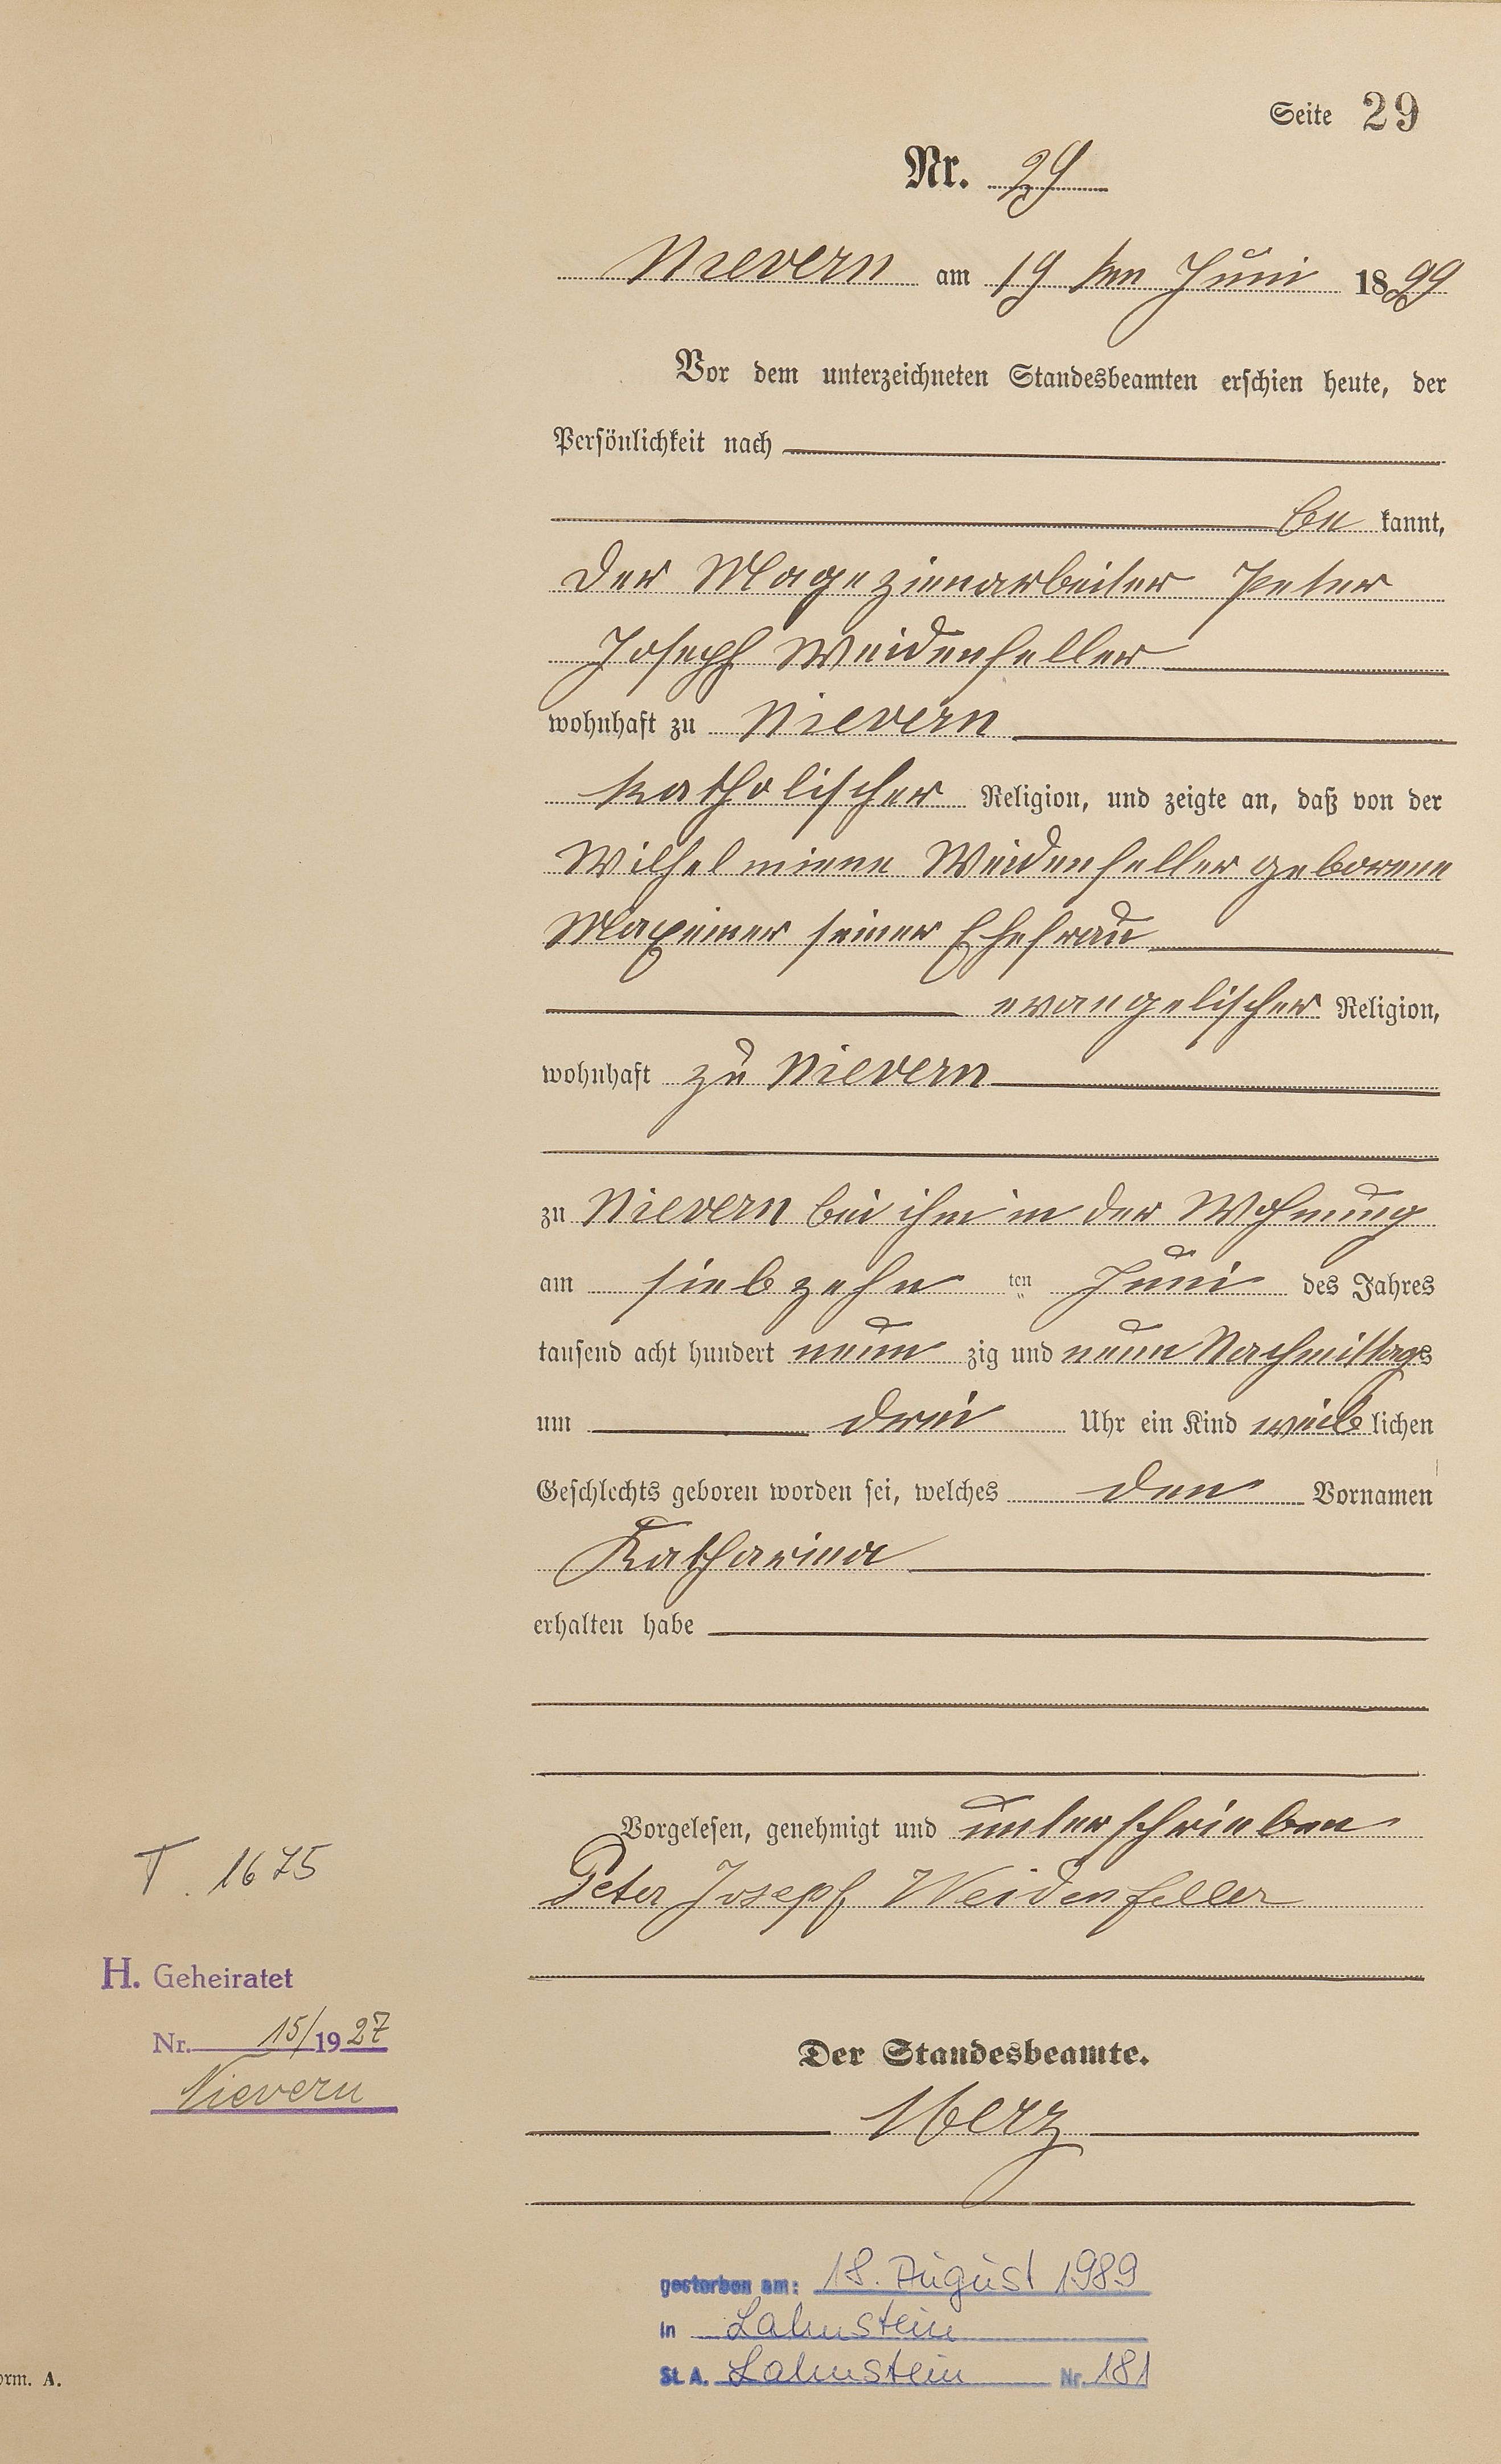 Seite 29
Nr. 29
Nievern am 19 ten Juni 1899
Vor dem unterzeichneten Standesbeamten erschien heute, der
Persönlichkeit nach
be kannt,
der Magezienarbeiter Peter
Joseph Weidenfeller
wohnhaft zu Nievern
katholischer Religion, und zeigte an, daß von der
Wilhelmiene Weidenfeller geborene
Maxeiner seiner Ehefrau
evangelischer Religion,
wohnhaft zu Nievern
zu Nievern bei ihm in der Wohnung
am siebzehn ten Juni des Jahres
tausend acht hundert neun zig und neun Nachmittags
um drei Uhr ein Kind weiblichen
Geschlechts geboren worden sei, welches den Vornamen
Katharina
erhalten habe
Vorgelesen, genehmigt und unterschrieben
Peter Joseph Weidenfeller
T. 1675
H. Geheiratet
Nr. 15/1927
Nievern
Der Standesbeamte.
gestorben am: 18. August 1989
in Lahnstein
St. A. Lahnstein Nr. 181
orm. A.